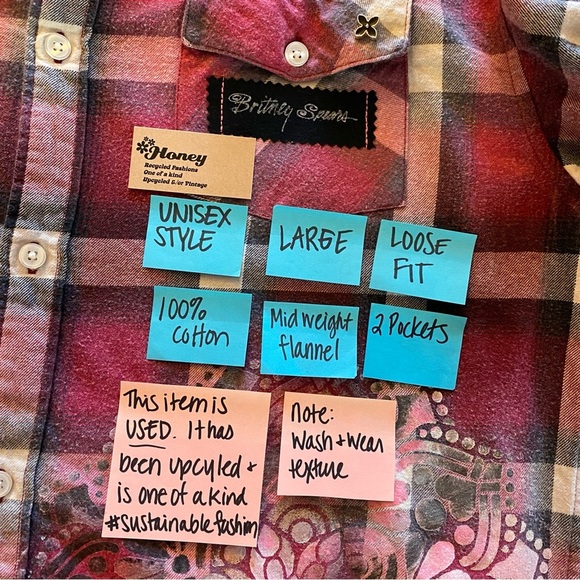 Britney Spears
Honey
Recycled Fashions
One of a kind
Upcycled &/or Vintage
UNISEX
STYLE
LARGE
LOOSE
FIT
100%
cotton
Mid weight
flannel
2 Pockets
This item is
USED. It has
been upcyled +
is one of a kind
#sustainablefashion
note:
wash + wear
texture